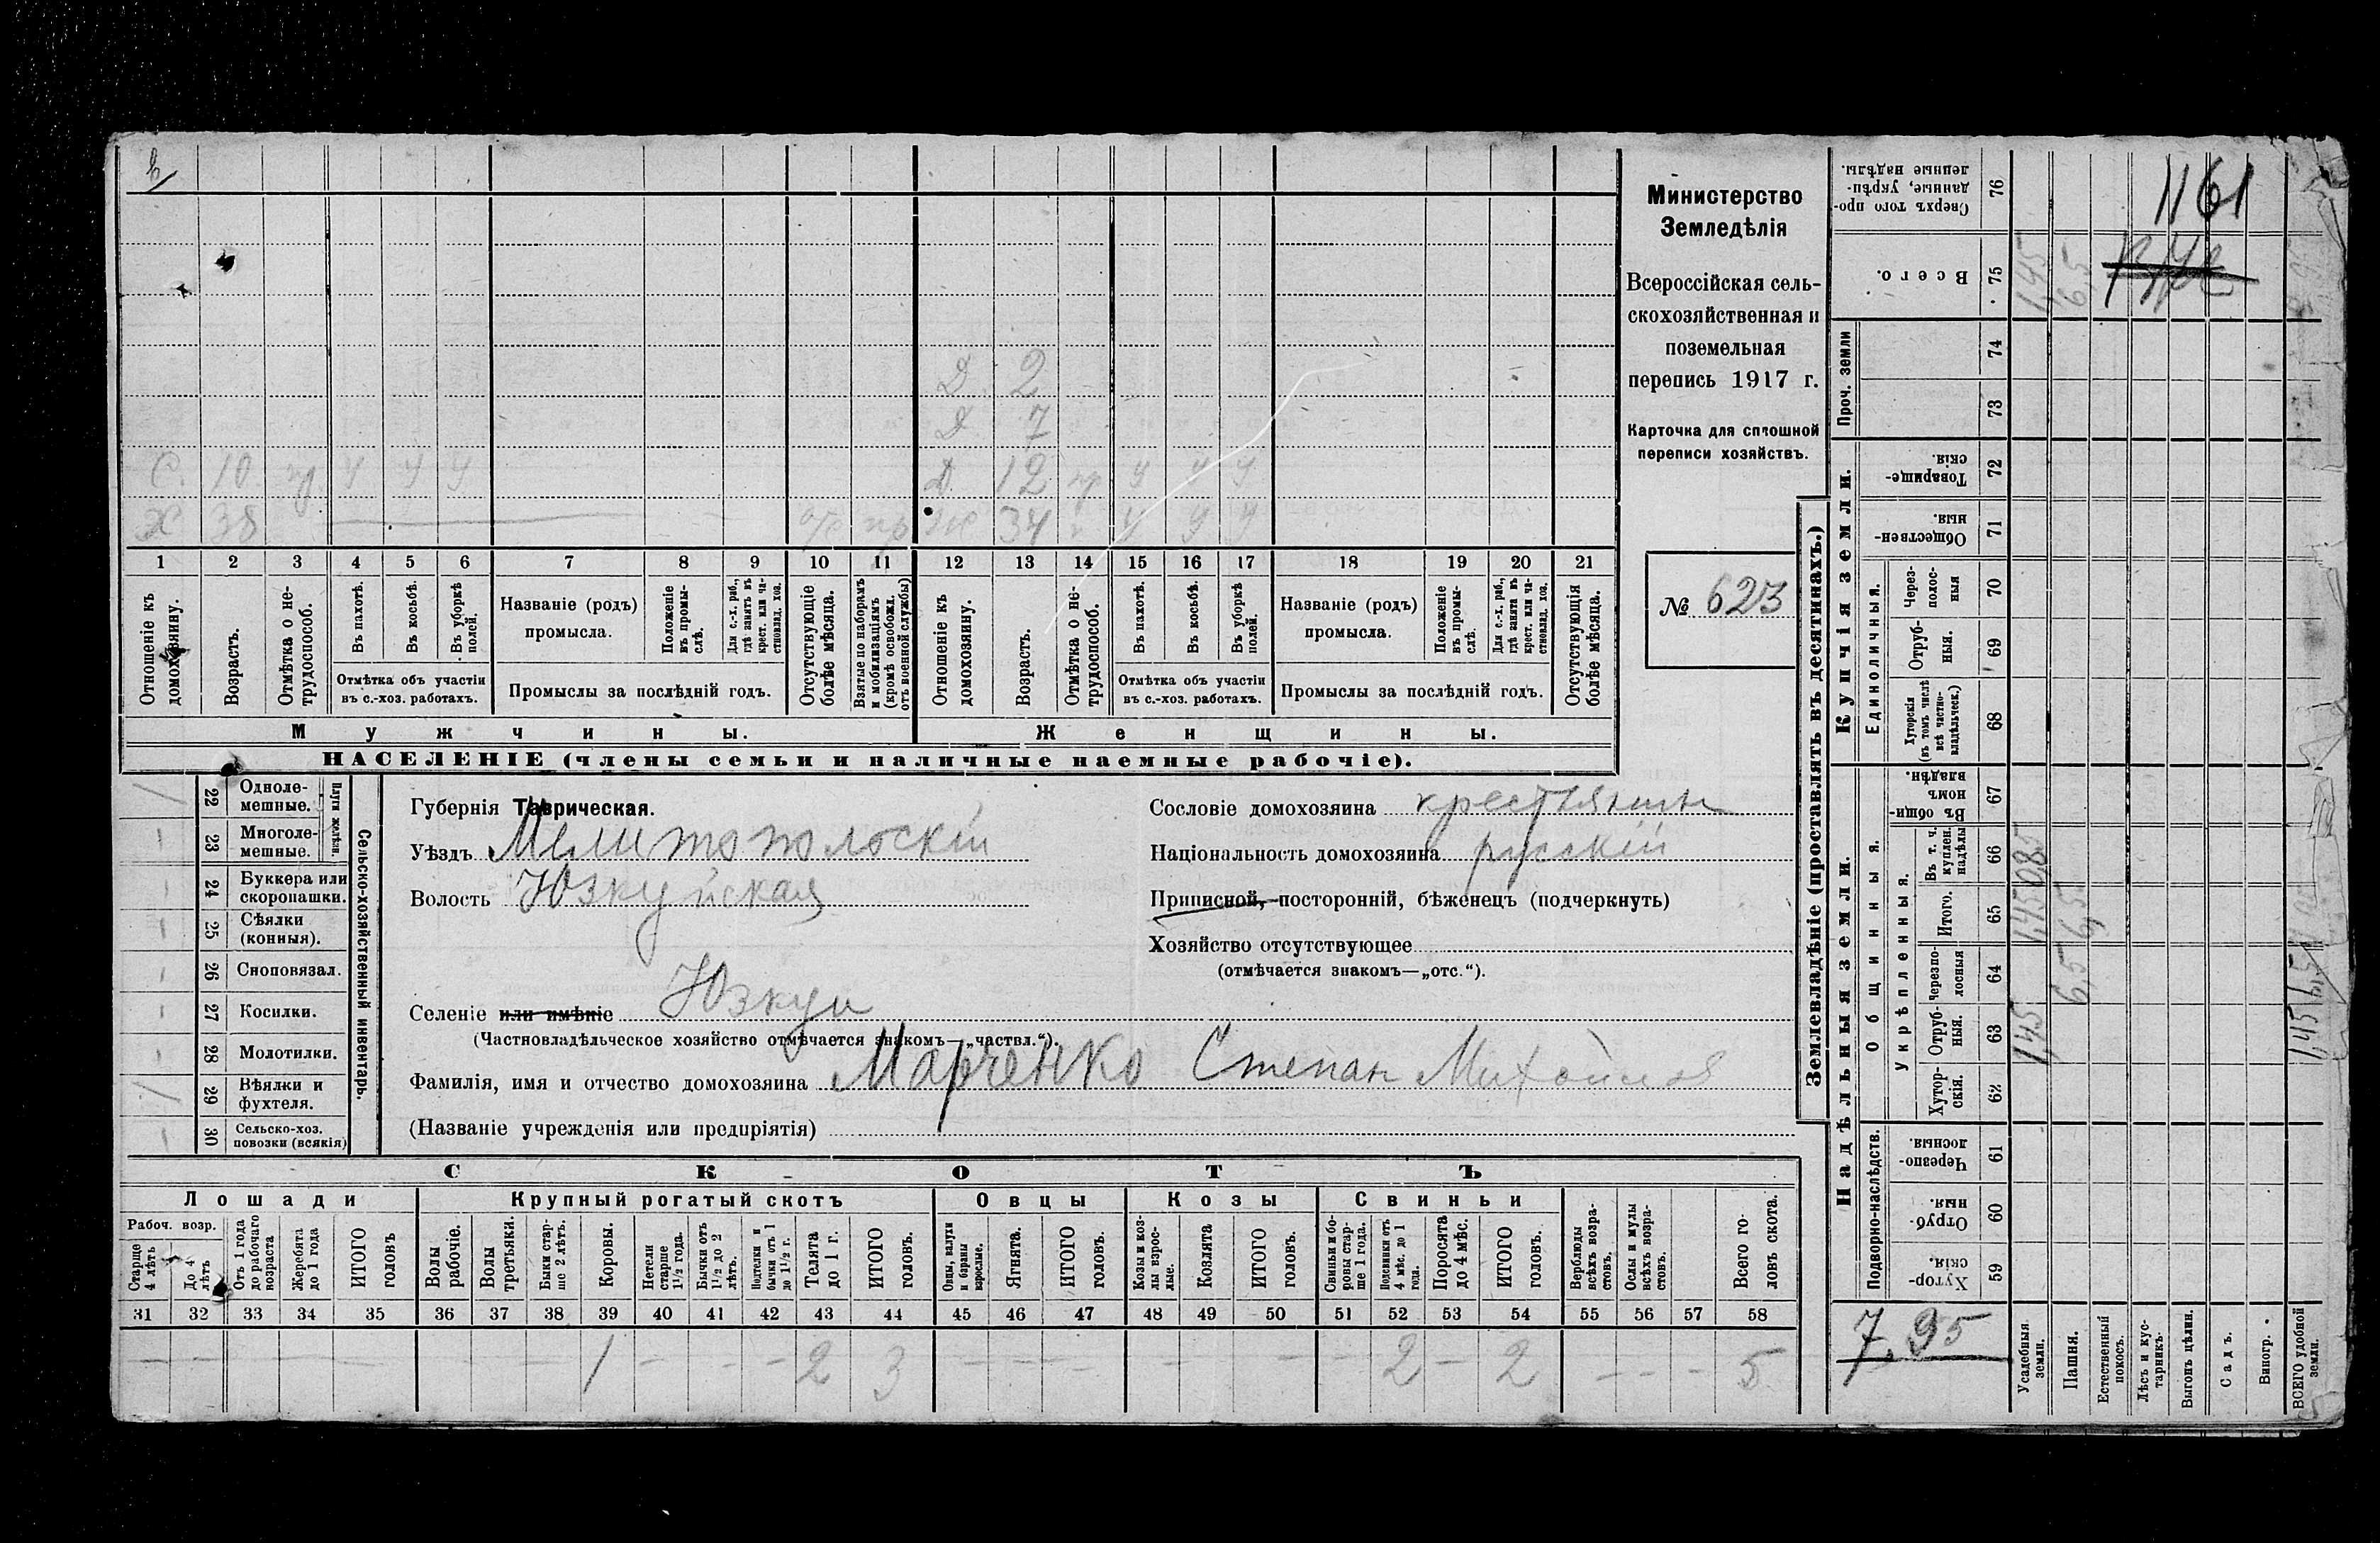 Министерство
Земледѣлія
Всероссійская сель-
скохозяйственная и
поземельная
перепись 1917 г.
Карточка для сплошной
переписи хозяйствъ.
№ 623
1161
Д 2
Д 7
С. 10 У У У
Д 12 У У У
Х 38
Ж 34 У У У
1 2 3 4 5 6 7 8 9 10 11 12 13 14 15 16 17 18 19 20 21
Отношеніе къ домохозяину.
Возрастъ.
Отмѣтка о не-трудоспособ.
Въ пахотѣ.
Въ косьбѣ.
Въ уборкѣ полей.
Отмѣтка объ участіи въ с.-хоз. работахъ.
Названіе (родъ) промысла.
Положеніе въ промы-слѣ.
Для с.-х. раб., гдѣ занятъ въ крест. или ча-стновлад. хоз.
Промыслы за послѣдній годъ.
Отсутствующіе болѣе мѣсяца.
Взятые по наборамъ и мобилизаціямъ (кромѣ освобожд. отъ военной службы)
Отношеніе къ домохозяину.
Возрастъ.
Отмѣтка о не-трудоспособ.
Въ пахотѣ.
Въ косьбѣ.
Въ уборкѣ полей.
Отмѣтка объ участіи въ с.-хоз. работахъ.
Названіе (родъ) промысла.
Положеніе въ промы-слѣ.
Для с.-х. раб., гдѣ занята въ крест. или ча-стновлад. хоз.
Промыслы за послѣдній годъ.
Отсутствующія болѣе мѣсяца.
Мужчины. Женщины.
НАСЕЛЕНІЕ (члены семьи и наличные наемные рабочіе).
22 Одноле-мешные.
23 Многоле-мешные.
Плуги желѣзн.
24 Буккера или скоропашки.
25 Сѣялки (конныя).
26 Сноповязал.
27 Косилки.
28 Молотилки.
29 Вѣялки и фухтеля.
30 Сельско-хоз. повозки (всякія)
Сельско-хозяйственный инвентарь.
Губернія Таврическая.
Уѣздъ Мелитопольскій
Волость Юзкуйская
Селеніе или имѣніе Юзкуи
(Частновладѣльческое хозяйство отмѣчается знакомъ—„частвл.“).
Фамилія, имя и отчество домохозяина Марченко Степан Михайлов
(Названіе учрежденія или предпріятія)
Сословіе домохозяина крестьянин
Національность домохозяина русскій
Приписной, посторонній, бѣженецъ (подчеркнуть)
Хозяйство отсутствующее
(отмѣчается знакомъ—„отс.“).
СКОТЪ
Лошади Крупный рогатый скотъ Овцы Козы Свиньи
Рабоч. возр.
Старше 4 лѣтъ
До 4 лѣтъ
Отъ 1 года до рабочаго возраста
Жеребята до 1 года
ИТОГО головъ
Волы рабочіе.
Волы третьяки.
Быки стар-ше 2 лѣтъ.
Коровы.
Нетели старше 1½ года.
Бычки отъ 1½ до 2 лѣтъ.
Подтелки и бычки отъ 1 до 1½ г.
Телята до 1 г.
ИТОГО головъ.
Овцы, валухи и бараны взрослые.
Ягнята.
ИТОГО головъ.
Козы и коз-лы взрос-лые.
Козлята
ИТОГО головъ.
Свиньи и бо-ровы стар-ше 1 года.
Подсвинки отъ 4 мѣс. до 1 года.
Поросята до 4 мѣс.
ИТОГО головъ.
Верблюды всѣхъ возра-стовъ.
Ослы и мулы всѣхъ возра-стовъ.
Всего го-ловъ скота.
31 32 33 34 35 36 37 38 39 40 41 42 43 44 45 46 47 48 49 50 51 52 53 54 55 56 57 58
1 2 3 2 2 5
Землевладѣніе (проставлять въ десятинахъ.)
Надѣльныя земли. Купчія земли. Проч. земли
Подворно-наслѣдств.
Общинныя.
Укрѣпленныя.
Единоличныя.
Хутор-скія. 59
Отруб-ныя. 60
Черезпо-лосныя. 61
Хутор-скія. 62
Отруб-ныя. 63
Черезпо-лосныя 64
Итого. 65
Въ т. ч. куплен. надѣлы 66
Въ общин-номъ владѣн. 67
Хуторскія (въ томъ числѣ всѣ частно-владѣльческ.) 68
Отруб-ныя. 69
Через-полос-ныя 70
Обществен-ныя. 71
Товарище-скія. 72
73
74
Всего. 75
Сверхъ того про-данные, укрѣп-ленные надѣлы. 76
7,95
Усадебныя земли. 1,45 1,45 1,45
Пашня. 6,5 6,5 6,5
Естественный покосъ.
Лѣсъ и кус-тарникъ.
Выгонъ цѣлин.
Садъ.
Виногр.
ВСЕГО удобной земли.